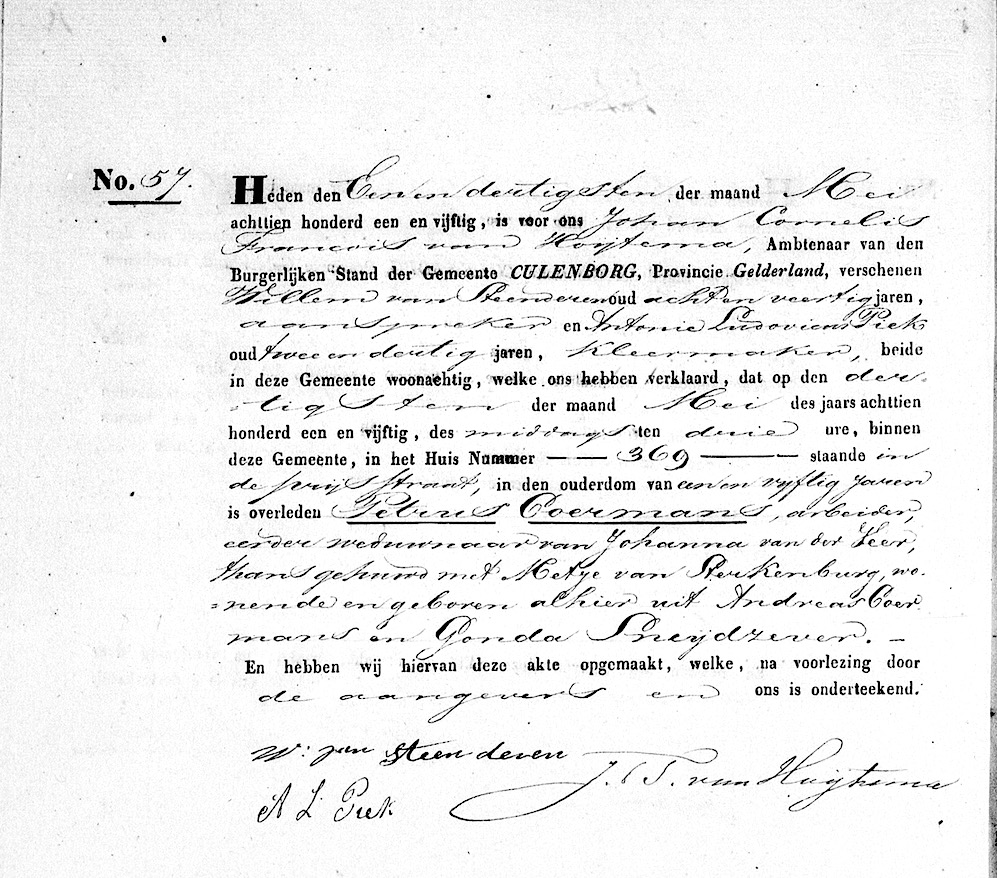 No. 57.
Heden den Een en dertigsten der maand Mei
achttien honderd een en vijftig, is voor ons Johan Cornelis
Francois van Hoytema, Ambtenaar van den
Burgerlijken Stand der Gemeente CULENBORG, Provincie Gelderland, verschenen
Willem van Steenderen oud acht en veertig jaren,
aanspreker en Antonie Ludovicus Piek
oud twee en dertig jaren, Kleermaker, beide
in deze Gemeente woonachtig, welke ons hebben verklaard, dat op den der-
tigsten der maand Mei des jaars achttien
honderd een en vijftig, des middags ten drie ure, binnen
deze Gemeente, in het Huis Nummer 369 staande in
de prijsstraat, in den ouderdom van een en vyftig jaren
is overleden Petrus Coermans, arbeider,
eerder weduwnaar van Johanna van der Veer,
thans gehuwd met Metje van Sterkenburg, wo-
=nende en geboren alhier uit Andreas Coer
mans en Gonda Sneydzever. –
En hebben wij hiervan deze akte opgemaakt, welke, na voorlezing door
de aangevers en ons is onderteekend.
W: van steenderen
J. C F. van Hoytema
A L Piek